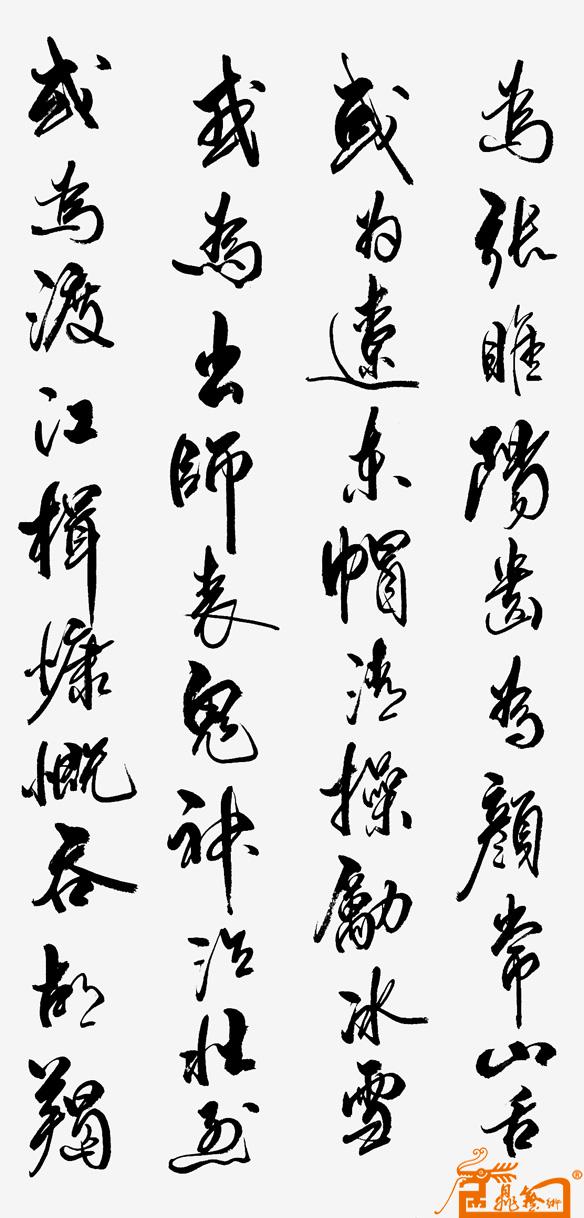 為張睢陽齒為顏常山舌
或为遼東帽清操勵冰雪
或為出師表鬼神泣壯烈
或為渡江楫慷慨吞胡羯